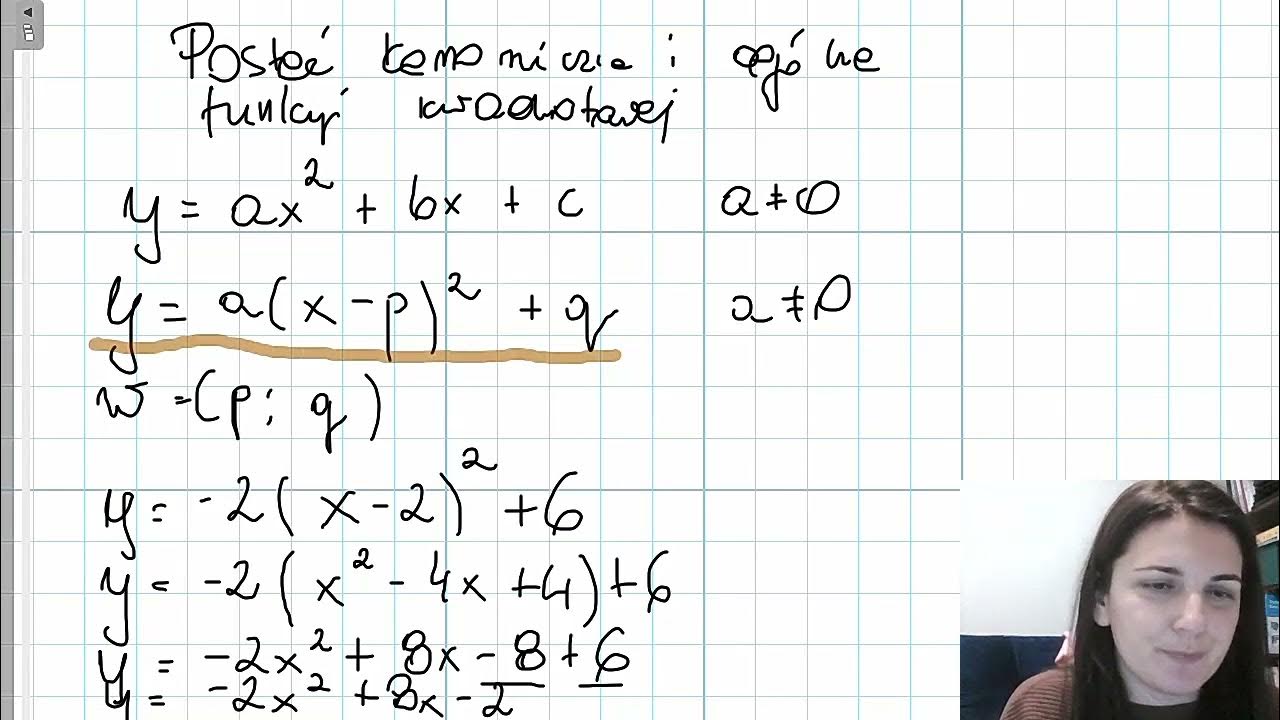 Postać kanoniczna i ogólna
funkcji kwadratowej
y = ax² + bx + c a ≠ 0
y = a(x - p)² + q a ≠ 0
W = (p; q)
y = -2(x - 2)² + 6
y = -2(x² - 4x + 4) + 6
y = -2x² + 8x - 8 + 6
y = -2x² + 8x - 2